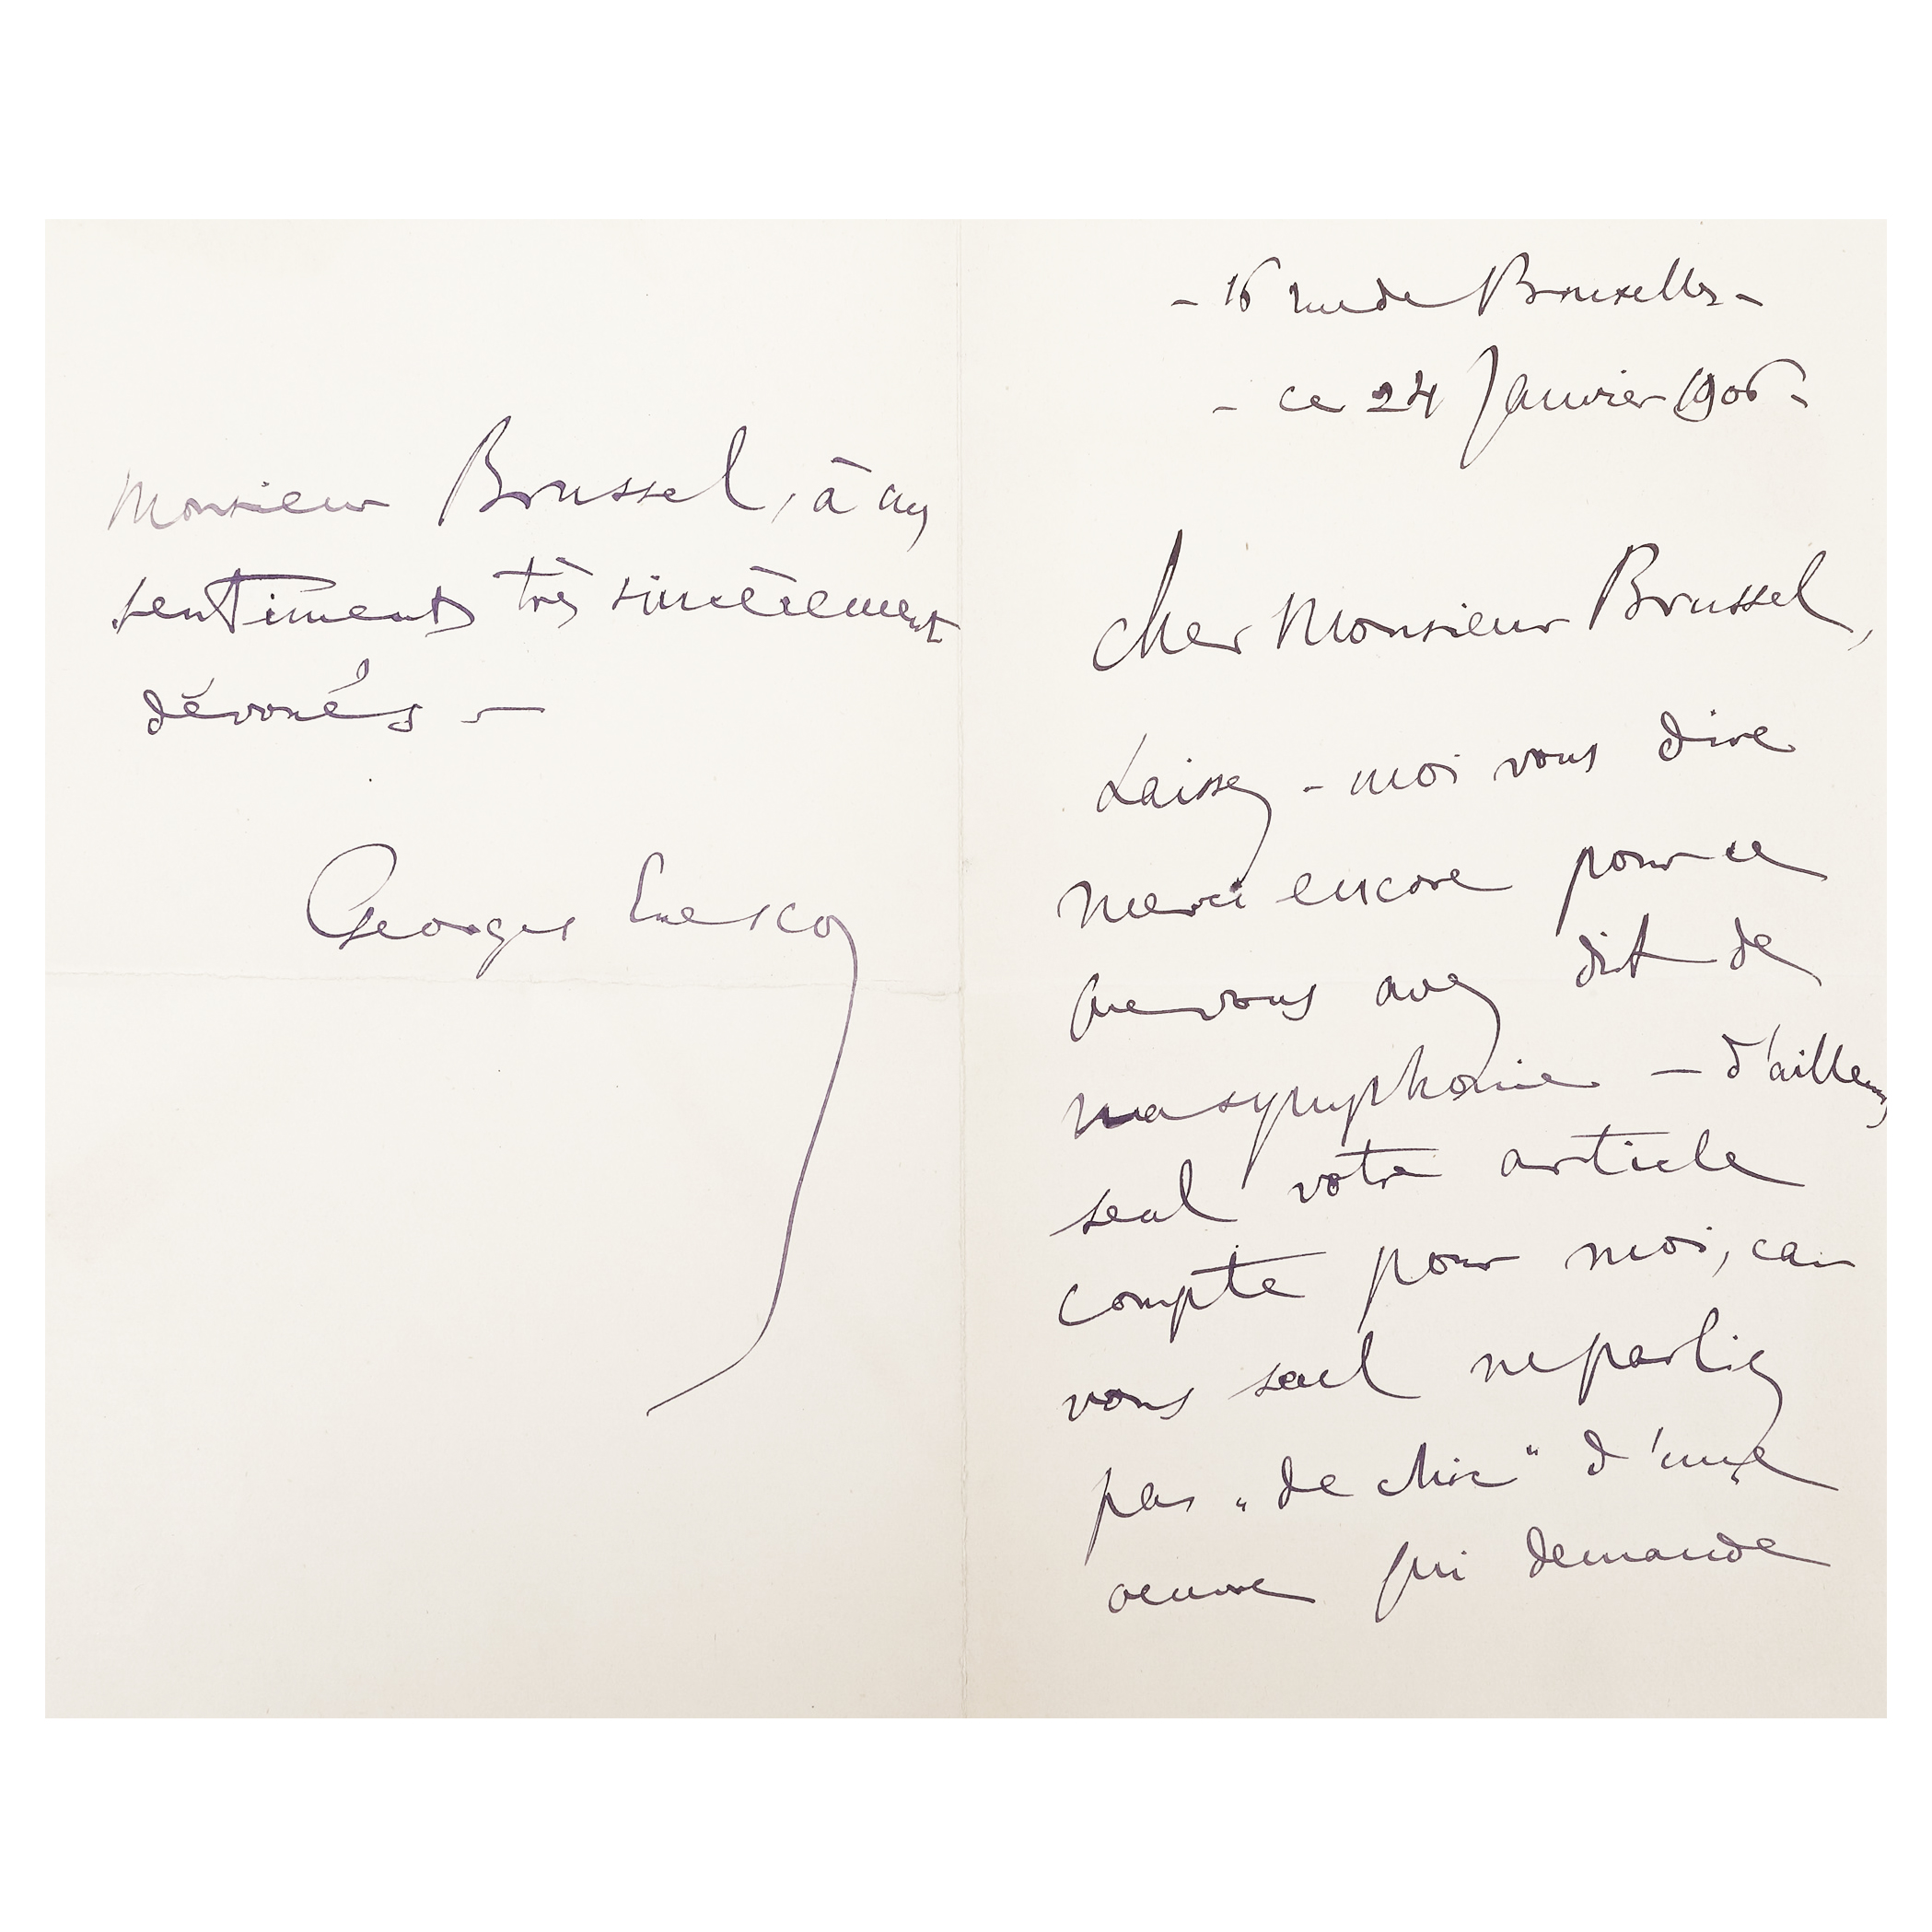 - 16 rue de Bruxelles -
- ce 24 Janvier 1906 -
Cher Monsieur Brussel,
Laissez-moi vous dire
merci encore pour ce
que vous avez dit de
ma symphonie — d'ailleurs
seul votre article
compte pour moi, car
vous seul ne parliez
pas „de chic" d'une
oeuvre qui demande
Monsieur Brussel, à mes
sentiments très sincèrement
dévoués —
Georges Enesco